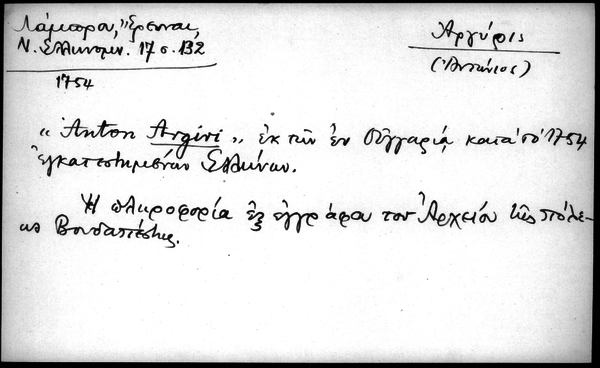 Λάμπρου, "Ερευναι,
Ν. Ελληνομν. 17 σ. 132
1754
Αργύρης
(Αντώνιος)
"Anton Argiri„ ἐκ τῶν ἐν Οὑγγαρίᾳ κατὰ τὸ 1754
ἐγκατεστημένων Ἑλλήνων.
Ἡ πληροφορία ἐξ ἐγγράφου τοῦ Ἀρχείου τῆς πόλε-
ως Βουδαπέστης.